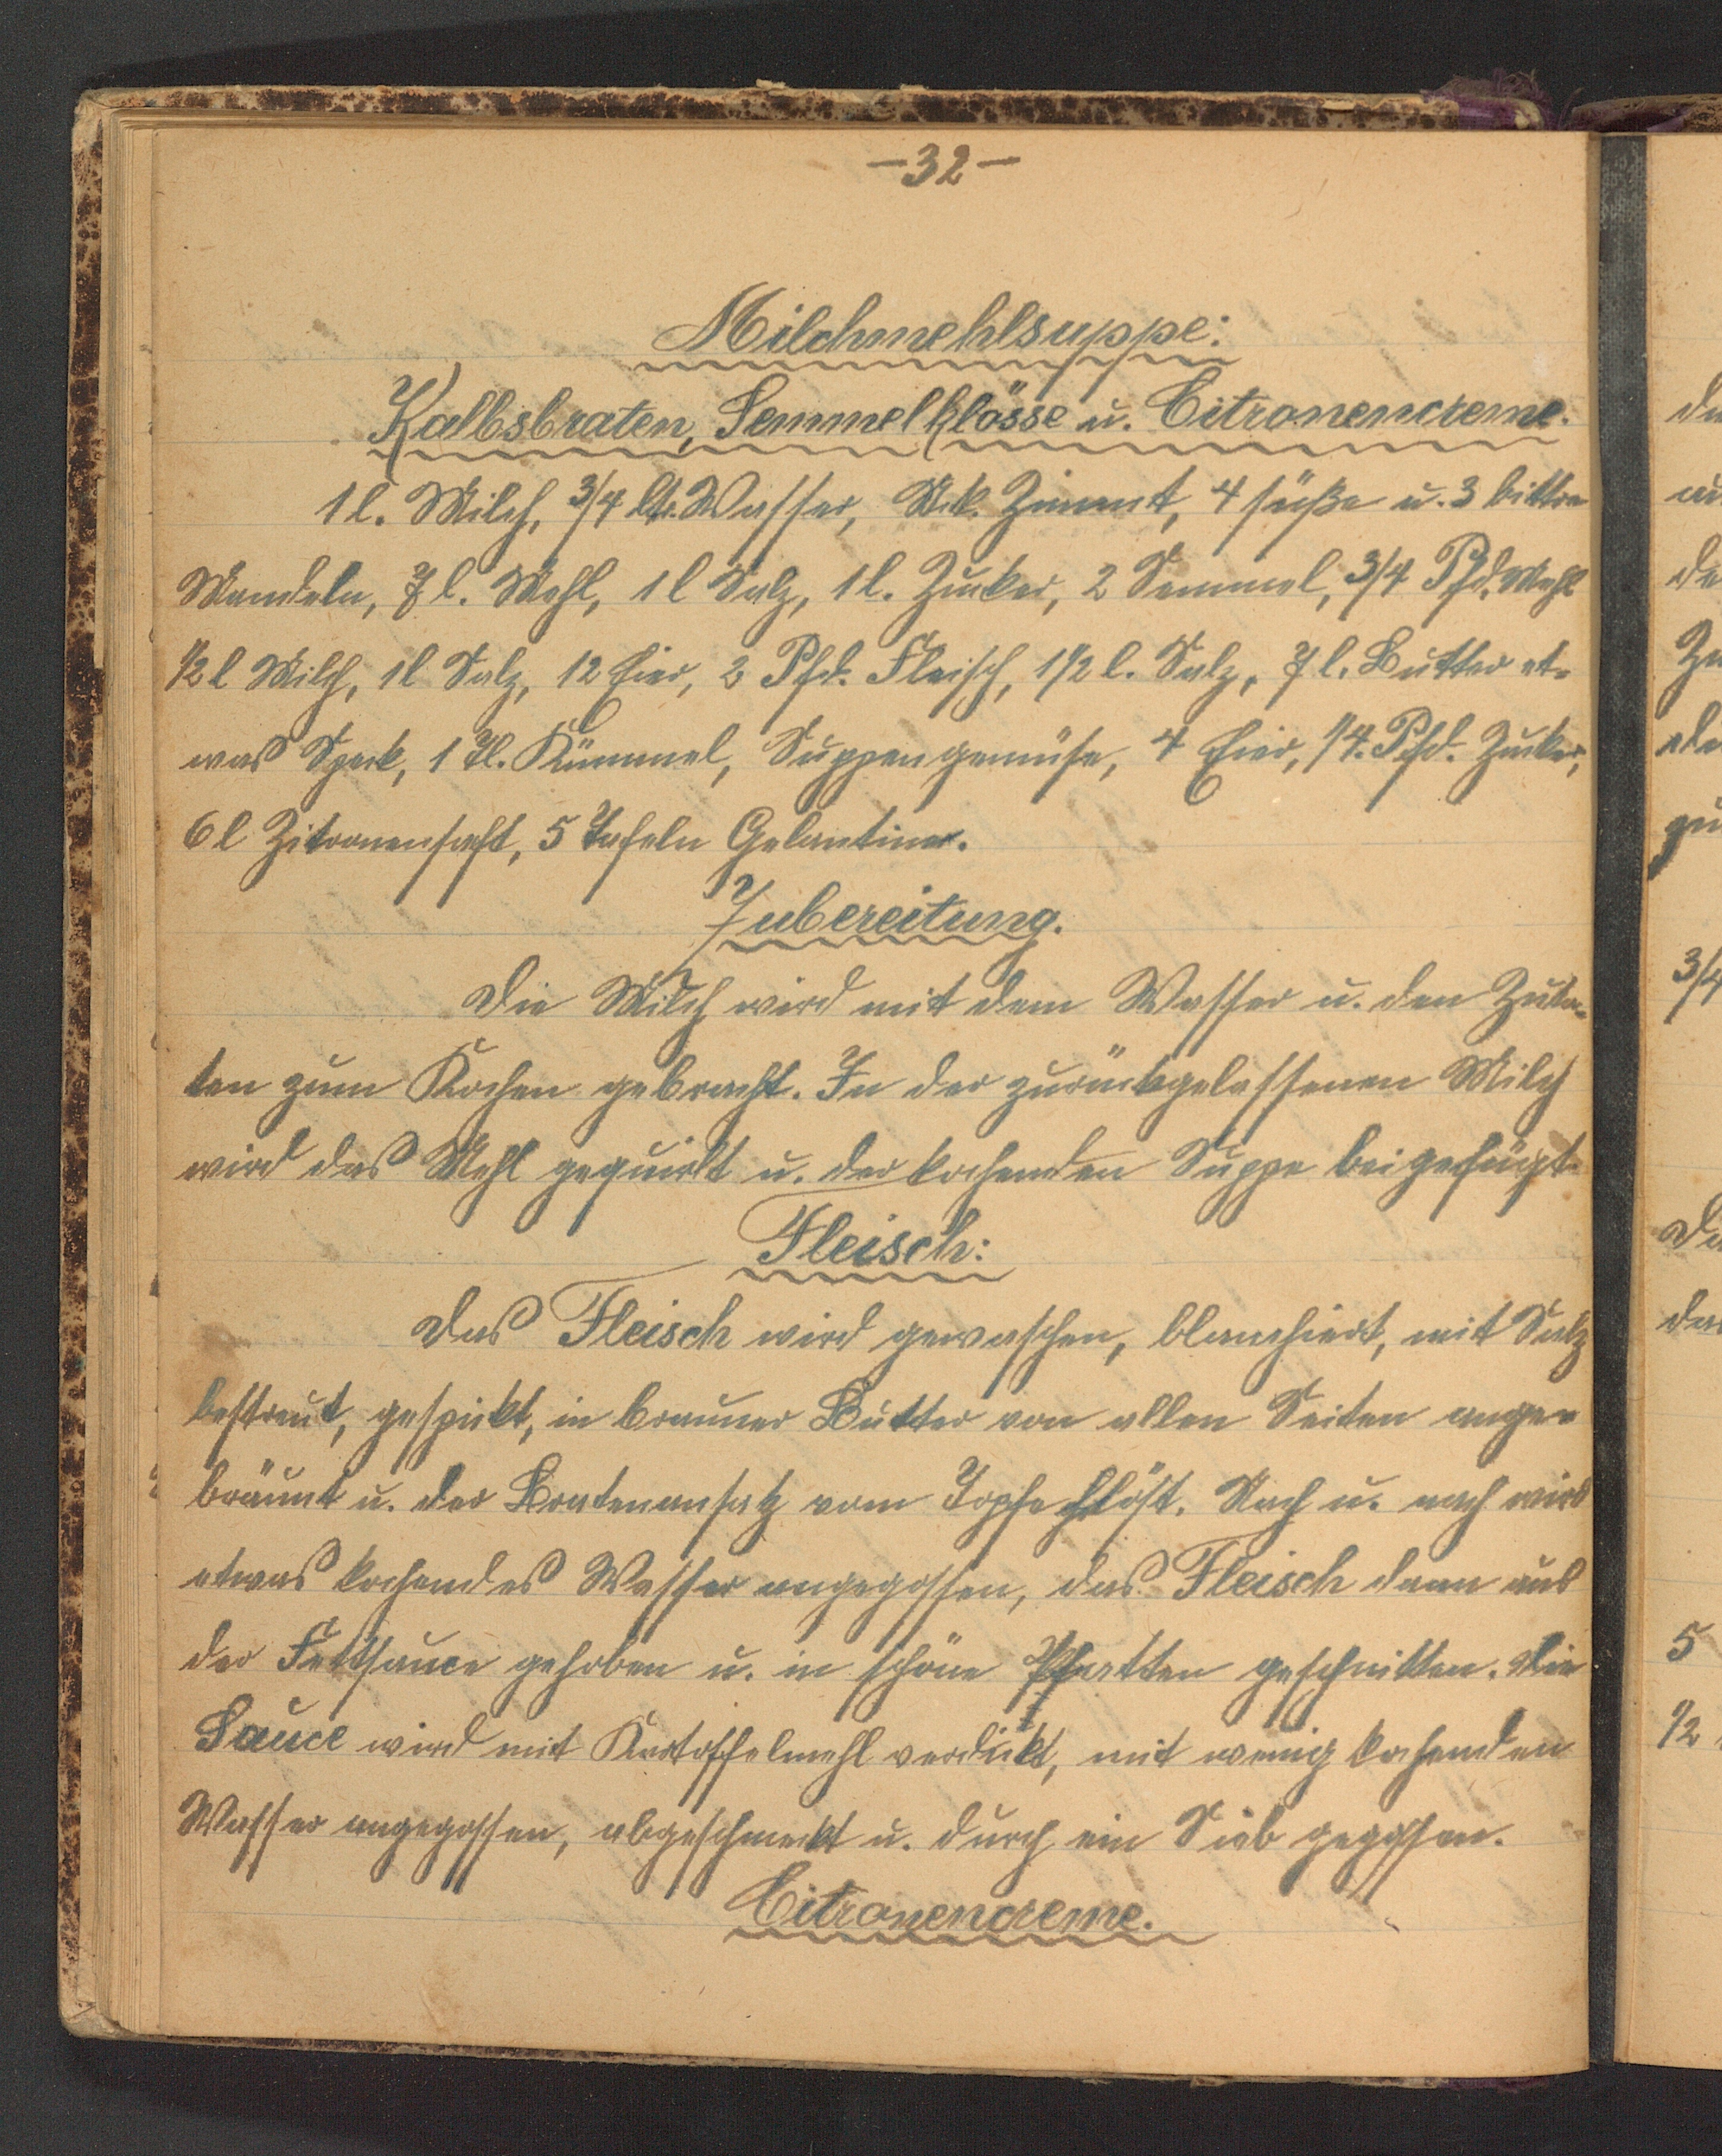 -32-
Milchmehlsuppe:
Kalbsbraten, Semmelklösse u. Citronencreme.
1 l. Milch, 3/4 ltr. Wasser, Stck. Zimmt, 4 süße u. 3 bittre
Mandeln, 7 l. Mehl, 1 l Salz, 1 l. Zucker, 2 Semmel, 3/4 Pfd. Mehl
1/2 l Milch, 1 l Salz, 12 Eier, 2 Pfd. Fleisch, 1 1/2 l. Salz, 7 l. Butter et-
was Speck, 1 Tl. Kümmel, Suppengemüse, 4 Eier, 1/4. Pfd. Zucker,
6 l Zitronensaft, 5 Tafeln Gelantine.
Zubereitung.
Die Milch wird mit dem Wasser u. den Zuta-
ten zum Kochen gebracht. In der zurückgelassenen Milch
wird das Mehl gequirlt u. der kochenden Suppe beigefügt.
Fleisch:
Das Fleisch wird gewaschen, blanchiert, mit Salz
bestreut, gespickt, in brauner Butter von allen Seiten ange-
bräunt u. der Bratenansatz vom Topfe Nach u. nach wird
etwas kochendes Wasser angegossen, das Fleisch dann aus
der Fettsauce gehoben u. in schöne geschnitten. Die
Sauce wird mit Kartoffelmehl verdickt, mit wenig kochenden
Wasser angegossen, abgeschmeckt u. durch ein Sieb gegossen.
Citronencreme.